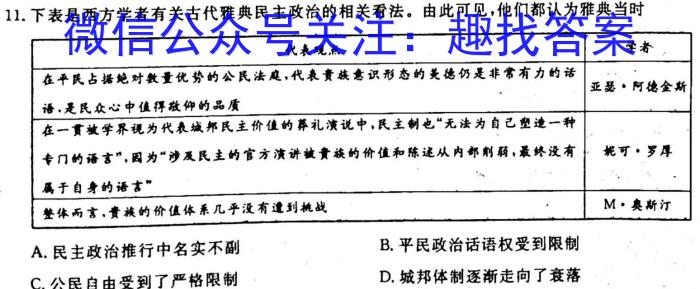 11. 下表是西方学者有关古代雅典民主政治的相关看法。由此可见,他们都认为雅典当时
微信公众号关注：趣找答案
代表观点 学者
在平民占据绝对数量优势的公民法庭,代表贵族意识形态的美德仍是非常有力的话
语,是民众心中值得敬仰的品质
亚瑟·阿德金斯
在一贯被学界视为代表城邦民主价值的葬礼演说中,民主制也“无法为自己塑造一种
专门的语言”,因为“涉及民主的官方演讲被贵族的价值和陈述从内部削弱,最终没有
属于自身的语言”
妮可·罗厚
整体而言,贵族的价值体系几乎没有遭到挑战 M·奥斯汀
A. 民主政治推行中名实不副 B. 平民政治话语权受到限制
C. 公民自由受到了严格限制 D. 城邦体制逐渐走向了衰落